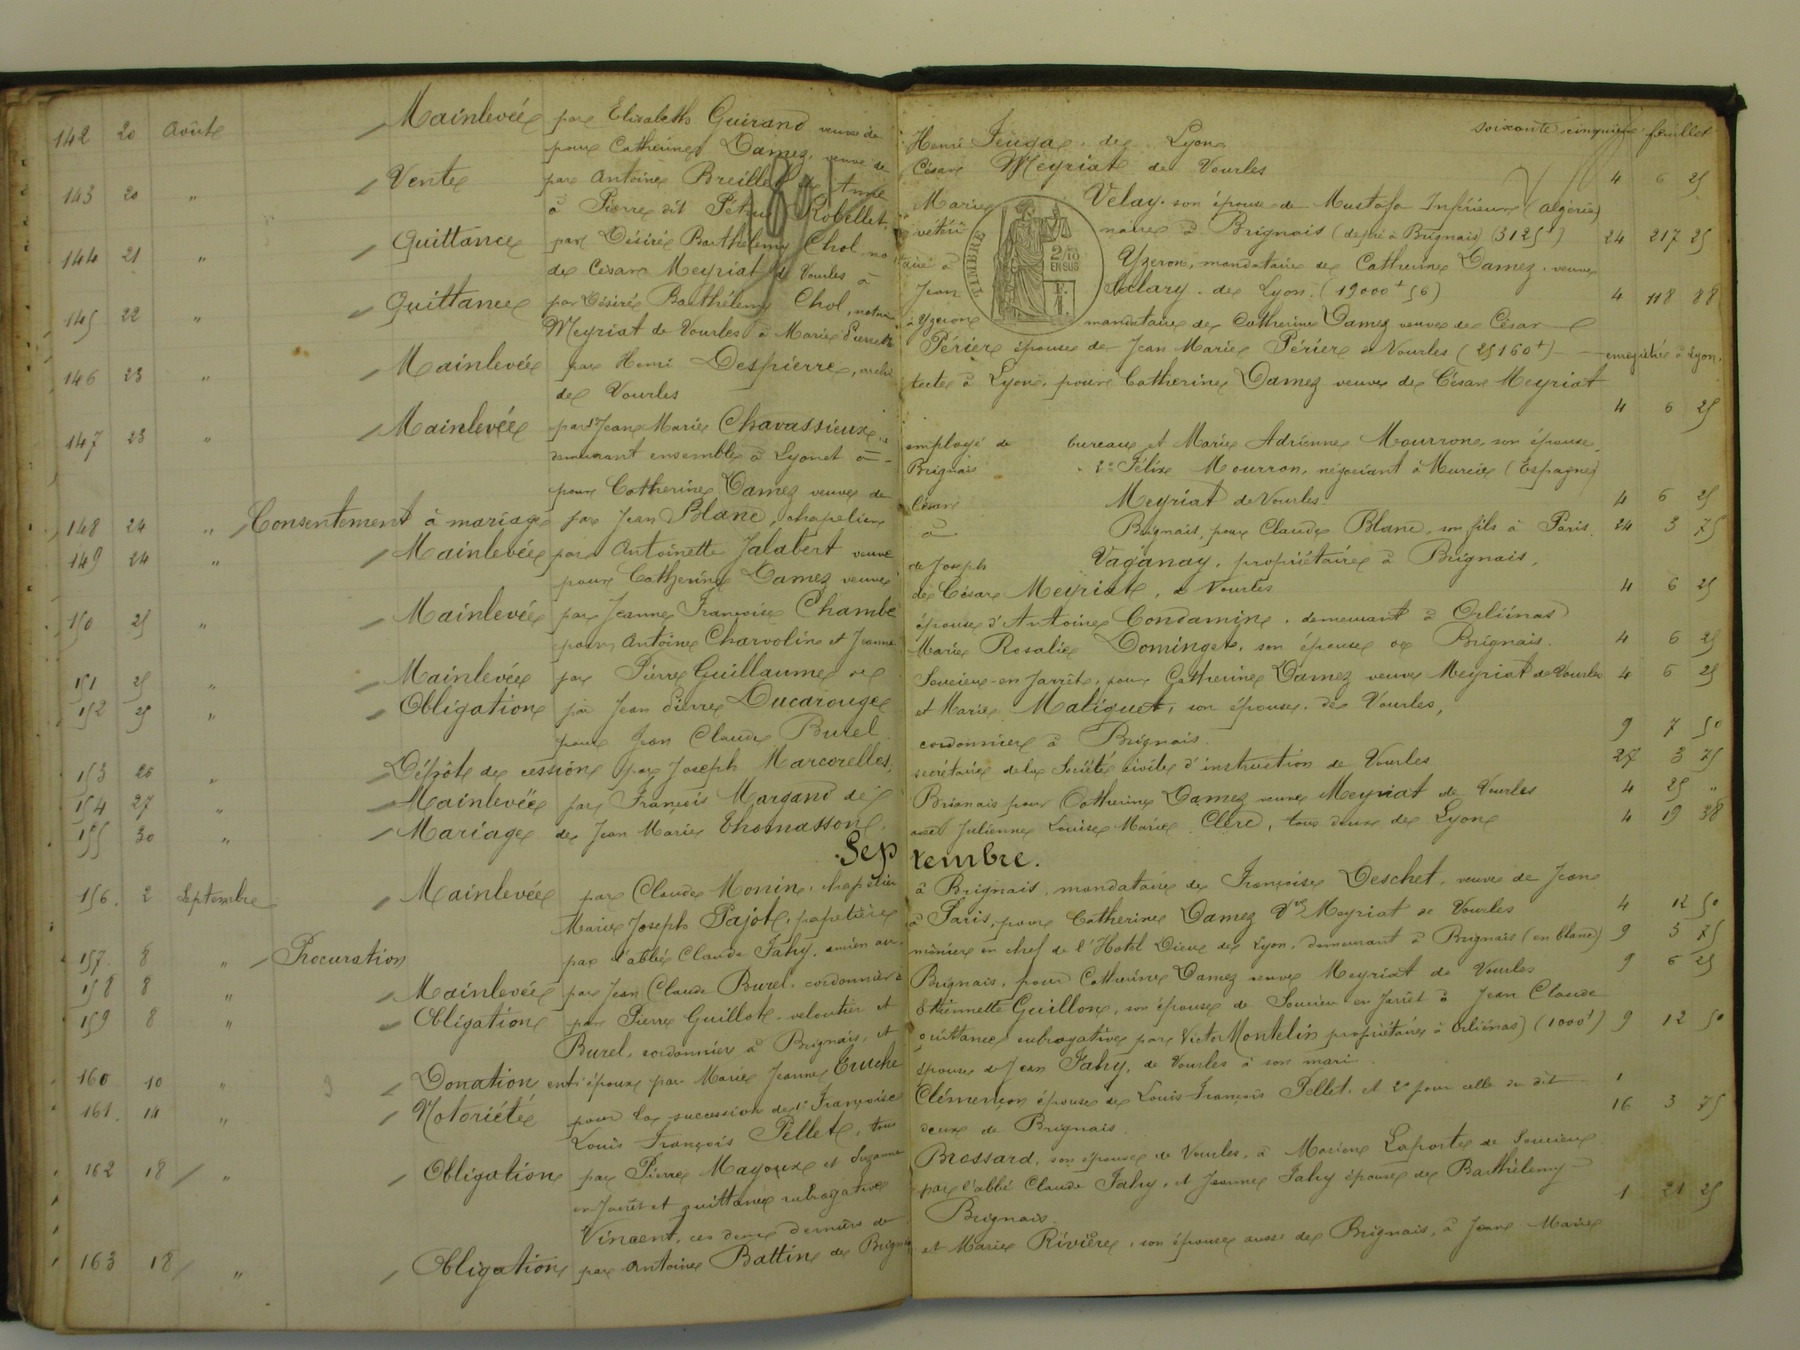 soixante cinquième feuillet
142 20 Août Mainlevée par Elisabeth Guirand veuve de Henri Feuga, de Lyon
pour Catherine Damez, veuve de César Meyriat de Vourles 4 6 25
143 20 " Vente par Antoine Breille et Anne Marie Velay son épouse de Mustafa Inférieur (Algérie)
à Pierre dit Pétrus Robellet, vétérinaire à Brignais (de pré à Brignais) (3125f) 24 217 25
144 21 " Quittance par Désiré Barthélemy Chol, notaire à Yzeron, mandataire de Catherine Damez, veuve
de César Meyriat de Vourles à Jean Salary, de Lyon. (19000f 56) 4 118 88
145 22 " Quittance par Désiré Barthélemy Chol, notaire à Yzeron mandataire de Catherine Damez veuve de César
Meyriat de Vourles à Marie Pierrette Périer épouse de Jean Marie Périer à Vourles (25160f) enregistré à Lyon.
146 23 " Mainlevée par Henri Despierre, architecte à Lyon, pour Catherine Damez veuve de César Meyriat
de Vourles 4 6 25
147 23 " Mainlevée par 1º Jean Marie Chavassieux, employé de bureau et Marie Adrienne Mourron son épouse,
demeurant ensemble à Lyon et à Brignais 2º Félix Mourron, négociant à Murcie (Espagne)
pour Catherine Damez veuve de César Meyriat de Vourles 4 6 25
148 24 " Consentement à mariage par Jean Blanc, chapelier à Brignais, pour Claude Blanc, son fils à Paris. 24 3 75
149 24 " Mainlevée par Antoinette Jalabert veuve de Joseph Vaganay, propriétaire à Brignais,
pour Catherine Damez veuve de César Meyriat, à Vourles 4 6 25
150 25 " Mainlevée par Jeanne Françoise Chambe épouse d'Antoine Condamin, demeurant à Orliénas
pour Antoine Charvolin et Jeanne Marie Rosalie Dominget, son épouse de Brignais. 4 6 25
151 25 " Mainlevée par Pierre Guillaume de Soucieu-en-Jarrêt, pour Catherine Damez veuve Meyriat de Vourles 4 6 25
152 25 " Obligation par Jean Pierre Ducarouge et Marie Maliquet, son épouse, de Vourles,
pour Jean Claude Burel cordonnier à Brignais. 9 7 50
153 26 " Dépôt de cession par Joseph Marcorelles, secrétaire de la Société civile d'instruction de Vourles 27 3 75
154 27 " Mainlevée par François Margand de Brignais pour Catherine Damez veuve Meyriat de Vourles 4 25 "
155 30 " Mariage de Jean Marie Thomasson avec Julienne Louise Marie Clerc, tous deux de Lyon 4 19 38
Septembre.
156. 2 Septembre Mainlevée par Claude Monin, chapelier à Brignais, mandataire de Françoise Deschet, veuve de Jean
Marie Joseph Pajot, papetière à Paris, pour Catherine Damez Vve Meyriat de Vourles 4 12 50
157. 8 " Procuration par l'abbé Claude Fahy, ancien aumônier en chef de l'Hotel Dieu de Lyon, demeurant à Brignais (en blanc) 9 3 75
158 8 " Mainlevée par Jean Claude Burel, cordonnier à Brignais, pour Catherine Damez veuve Meyriat de Vourles 9 6 25
159 8 " Obligation par Pierre Guillot veloutier et Etiennette Guillon, son épouse de Soucieu en Jarrêt à Jean Claude
Burel, cordonnier à Brignais, et quittance subrogative par Victor Montelin propriétaire à Orliénas) (1000f) 9 12 50
160 10 " Donation entr'époux par Marie Jeanne Cruche épouse de Jean Fahy, de Vourles à son mari 1
161. 14 " Notoriété pour la succession de 1º Françoise Clémençon épouse de Louis François Pellet, et 2º pour celle du dit
Louis François Pellet, tous deux de Brignais. 16 3 75
162 18 " Obligation par Pierre Mayoux et Suzanne Brossard, son épouse de Vourles, à Mariane Laporte de Soucieu
en Jarrêt et quittance subrogative par l'abbé Claude Fahy, et Jeanne Fahy épouse de Barthélemy
Vincent, ces deux derniers de Brignais. 1 21 25
163 18 " Obligation par Antoine Battin de Brignais et Marie Rivière, son épouse aussi de Brignais, à Jean Marie
TIMBRE
2/10
EN SUS